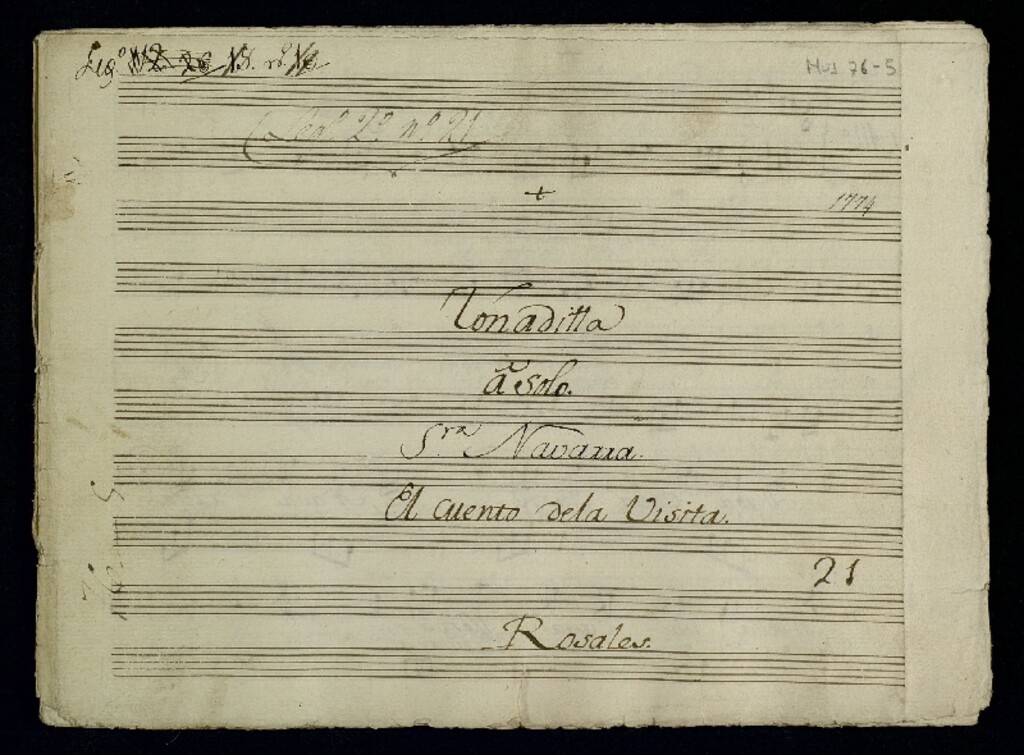 Leg.º
Mus 76-5
Leg.º 2.º n.º 21
1774
Tonaditta
a solo.
S.ra Navarra.
El Cuento dela Visita.
21
Rosales.